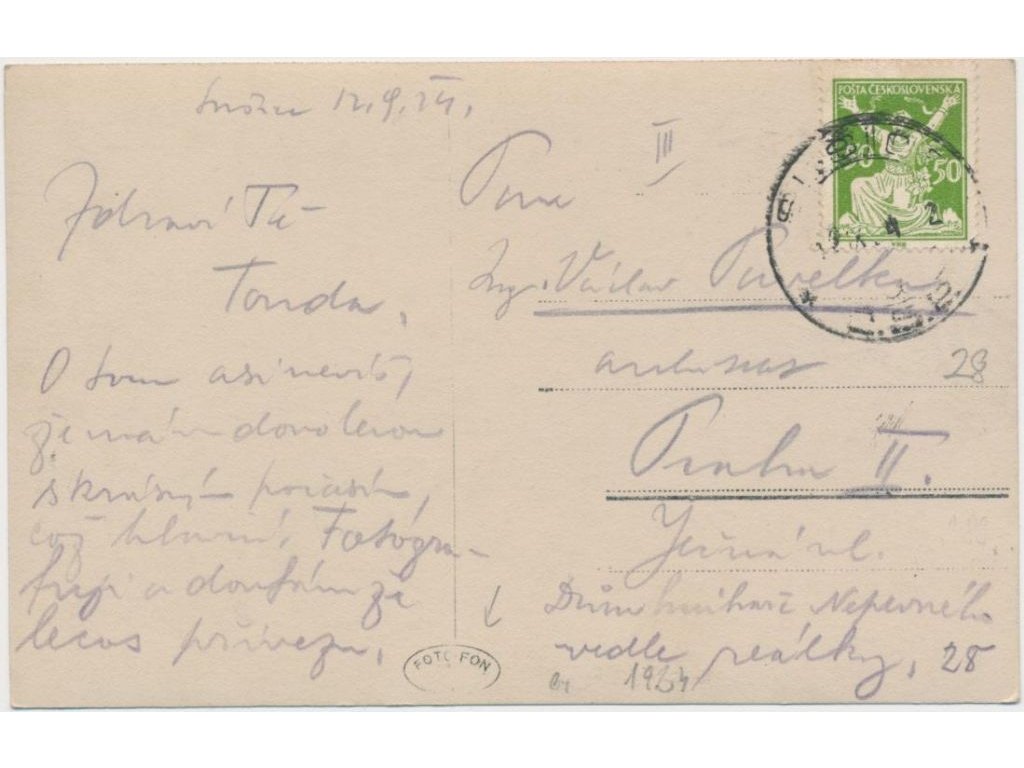 Sušice 12.9.24.
Zdraví Tě
Tonda,
O tom asi nevíš,
že mám dovolenou
s krásným počasím,
což hlavní. Fotogra-
fuji a doufám že
lecos přivezu,
FOTOFON
III
Pan
Ing. Václav Pavelka
28
Praha II.
Ječná ul.
Dům knihaře Nepevného
vedle reálky, 28
1924
POŠTA ČESKOSLOVENSKÁ
50 50